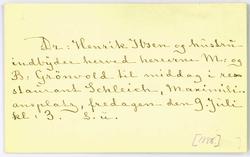 Dr: Henrik Ibsen og hustru
indbyder herved herrerne M. og
B. Grönvold til middag i re=
staurant Schleich, Maximili=
ansplatz, fredagen den 9 juli
kl. 3. S. u.
[1886]